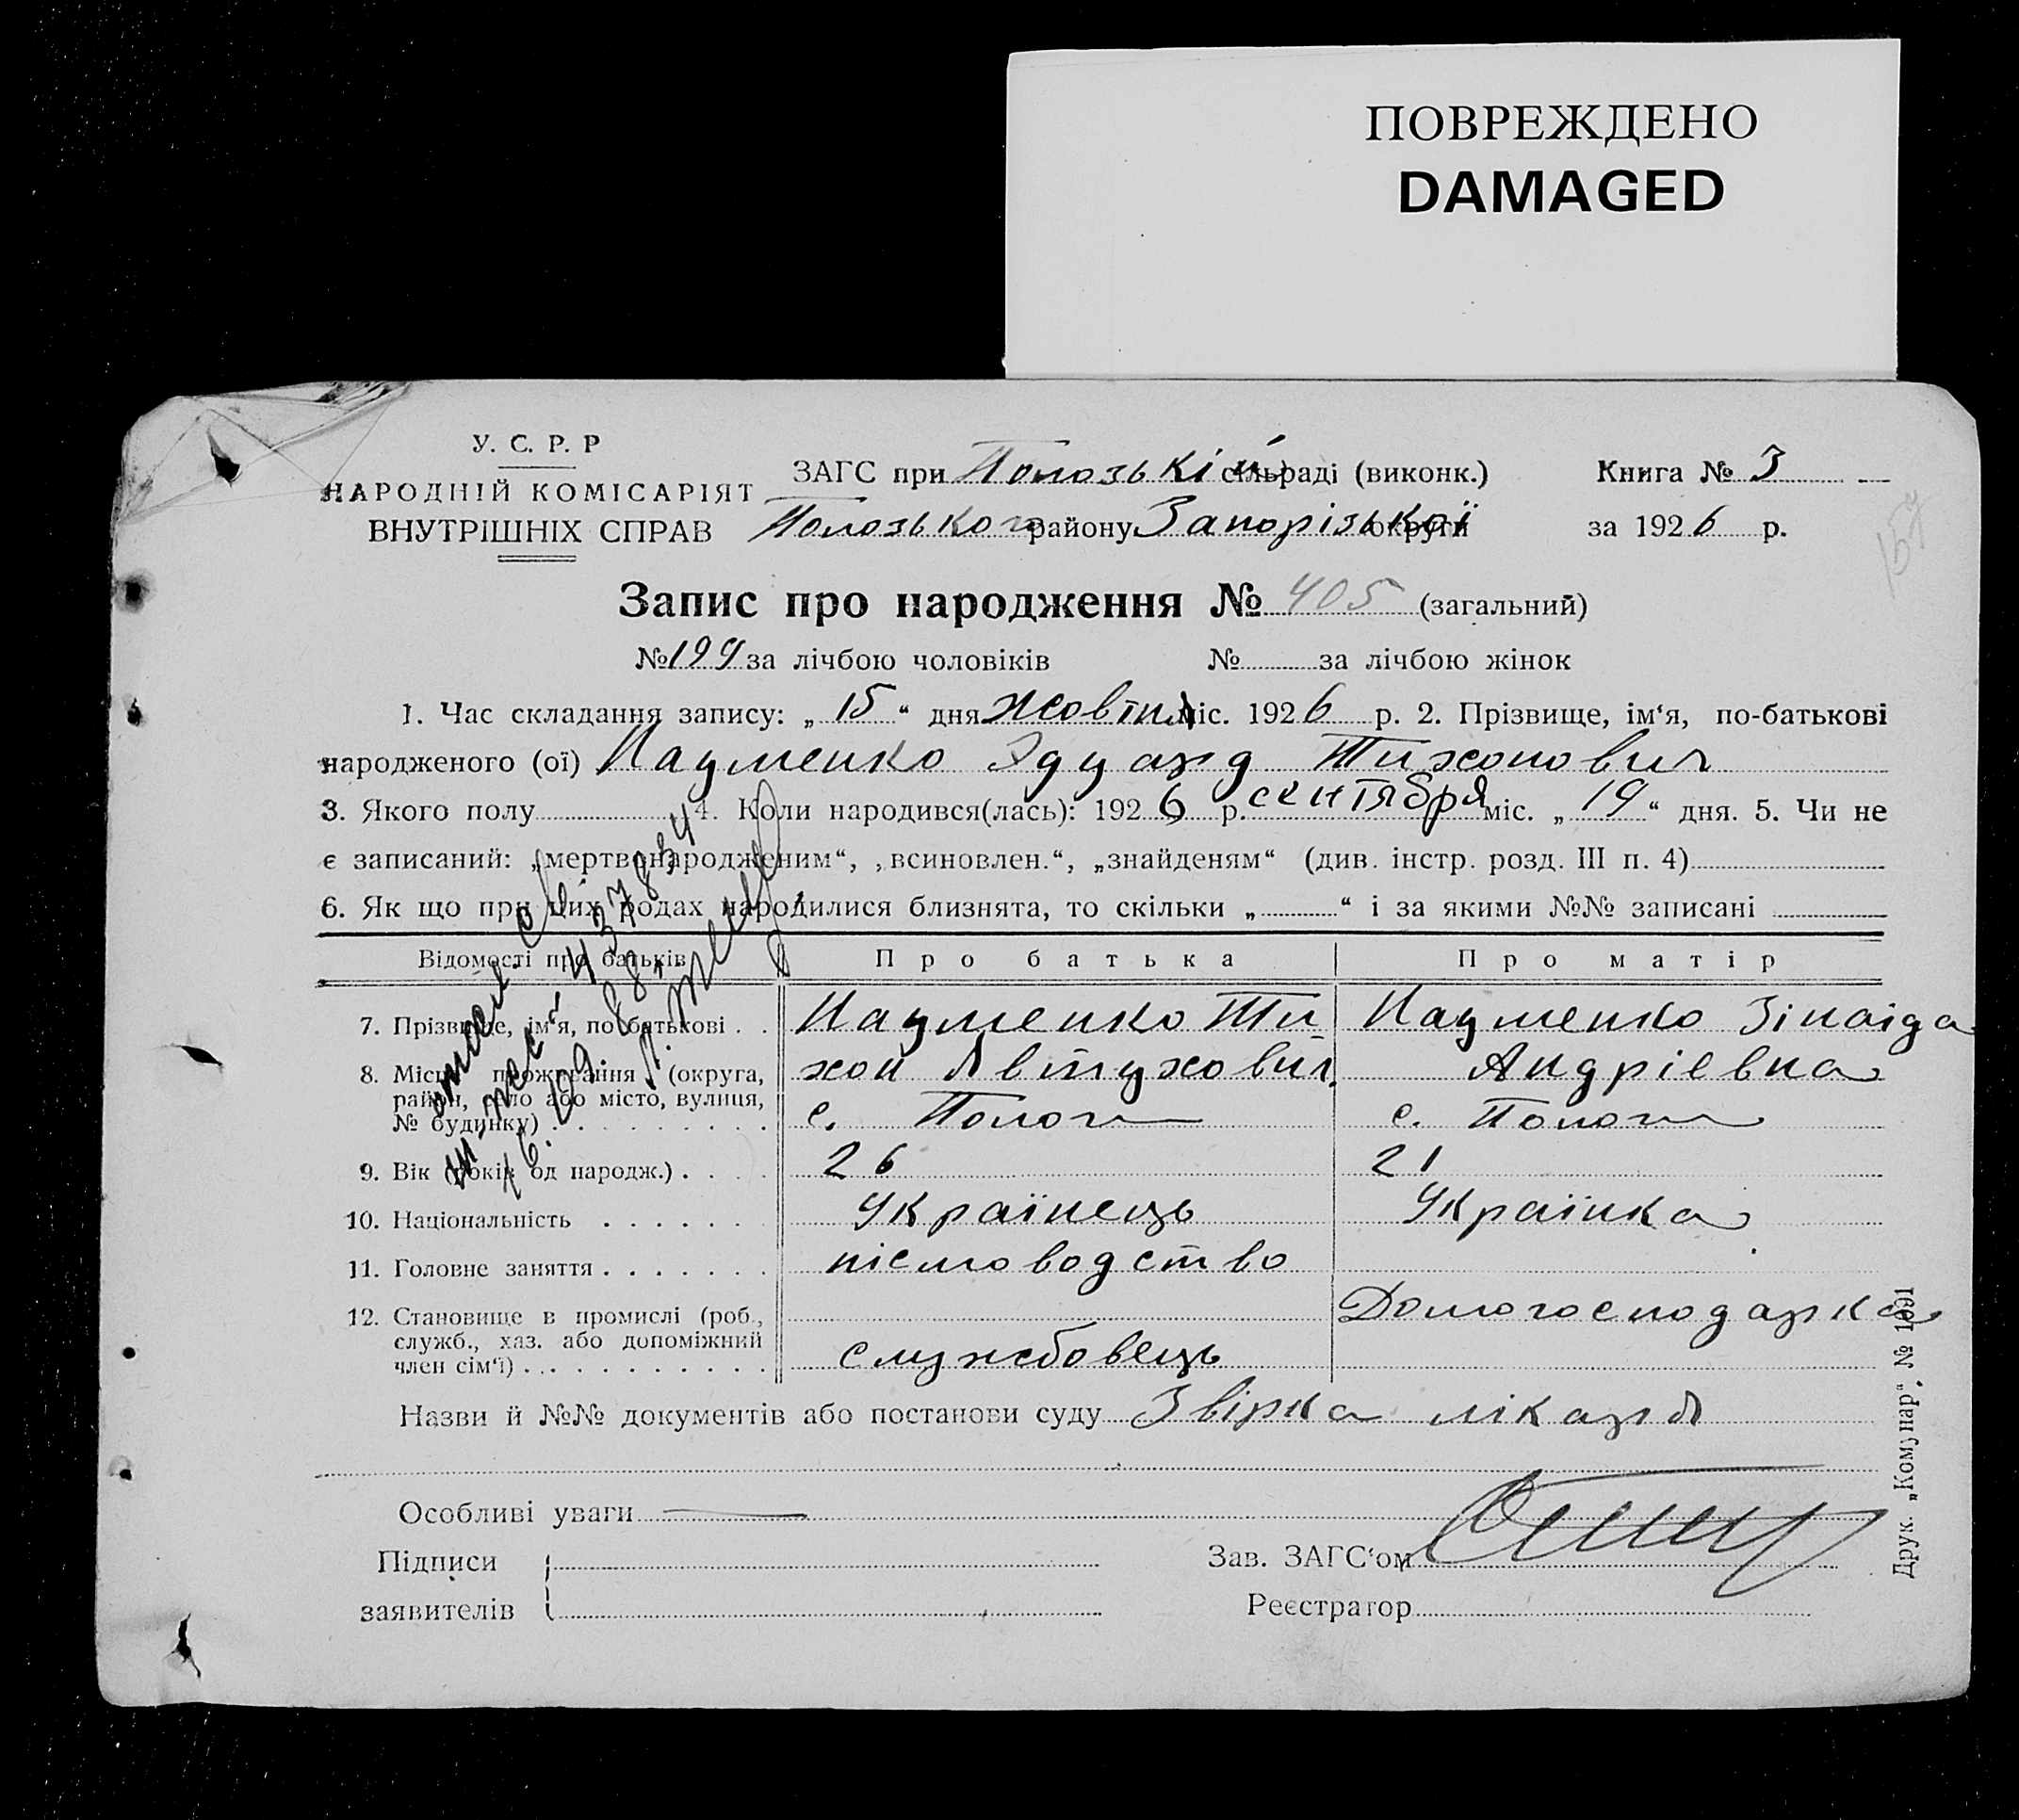 ПОВРЕЖДЕНО
DAMAGED
У. С. Р. Р
НАРОДНІЙ КОМІСАРІЯТ
ВНУТРІШНІХ СПРАВ
ЗАГС при Полозькій сільраді (виконк.)
Полозького району Запорізької округи
Книга № 3
за 1926 р.
157
Запис про народження № 405 (загальний)
№ 199 за лічбою чоловіків № за лічбою жінок
1. Час складання запису: „15“ дня жовтня міс. 1926 р. 2. Прізвище, ім‘я, по-батькові
народженого (ої) Науменко Эдуард Тихонович
3. Якого полу 4. Коли народився(лась): 1926 р. сентября міс. „19“ дня. 5. Чи не
є записаний: „мертвонародженим“, „всиновлен.“, „знайденям“ (див. інстр. розд. III п. 4)
6. Як що при цих родах народилися близнята, то скільки „ “ і за якими №№ записані
Відомості про батьків Про батька Про матір
7. Прізвище, ім‘я, по-батькові . . Науменко Ти Науменко Зінаіда
8. Місце проживання (округа, хон Явтухович Андріевна
район, село або місто, вулиця,
№ будинку) . . . . . . . . . с. Пологи с. Пологи
9. Вік (років од народж.) . . . . 26 21
10. Національність . . . . . . Українець Українка
11. Головне заняття . . . . . . . пісмоводство
12. Становище в промислі (роб., Домогосподарка
служб., хаз. або допоміжний
член сім‘ї) . . . . . . . . . . . службовець
Назви й №№ документів або постанови суду Звірка лікаря
Особливі уваги
Підписи
заявителів
Зав. ЗАГС‘ом
Реєстратор
Друк. „Комунар“. № 1091